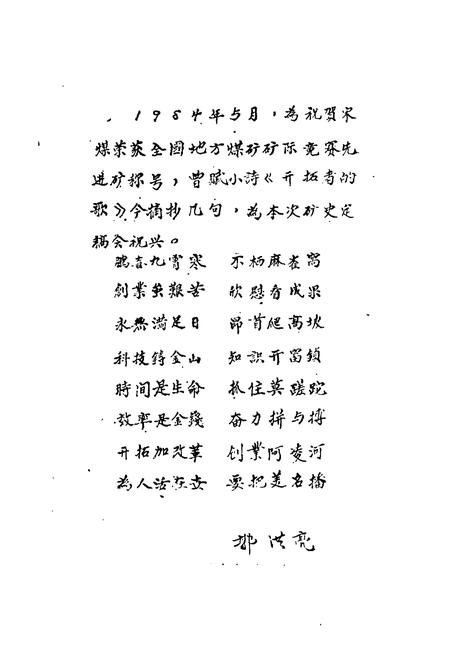 1984年5月，為祝贺宋
煤荣获全国地方煤矿矿际竞赛先
进矿称号，曾赋小詩《开拓者的
歌》今摘抄几句，為本次矿史定
稿会祝兴。
鹏喜九霄寒 不栖麻雀窩
創業虽艱苦 欣慰看成果
永無满足日 昂首爬高坡
科技铸金山 知識开富鎖
時间是生命 抓住莫蹉跎
效率是金錢 奋力拼与搏
开拓加改革 创業阿凌河
為人活在世 要把美名播
洪亮